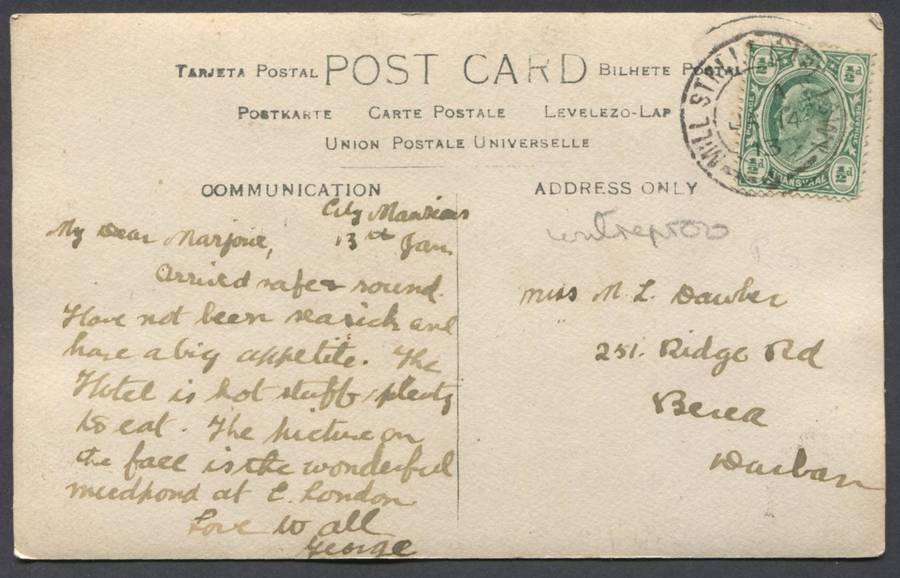 TARJETA POSTAL POST CARD BILHETE POSTAL
POSTKARTE CARTE POSTALE LEVELEZO-LAP
UNION POSTALE UNIVERSELLE
COMMUNICATION
City Mansions
13th Jan
My Dear Marjorie,
Arrived safe & sound.
Have not been seasick and
have a big appetite. The
Hotel is hot stuff, plenty
to eat. The picture on
the face is the wonderful
mudpond at E. London
Love to all
George
ADDRESS ONLY
Miss M L. Dawber
251. Ridge Rd
Berea
Durban
MILL ST
TRANSVAAL